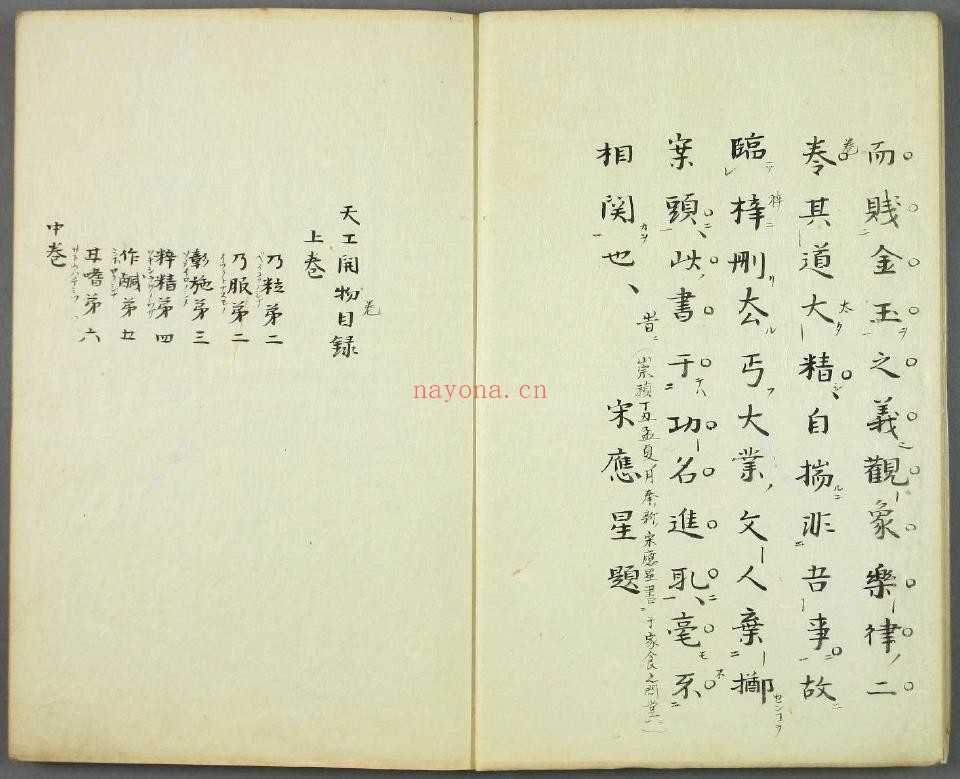 而賤金玉之義觀象樂律二
卷其道大精自揣非吾事故
臨梓刪去丐大業文人棄擲
案頭此書于功名進取毫不
相関也、
昔(崇禎丁丑孟夏月奉新宋應星書于家食之問堂)
宋應星題
天工開物目録
卷
上卷
乃粒第二
乃服第二
彰施第三
粹精第四
作鹹第五
甘嗜第六
中巻
nayona.cn